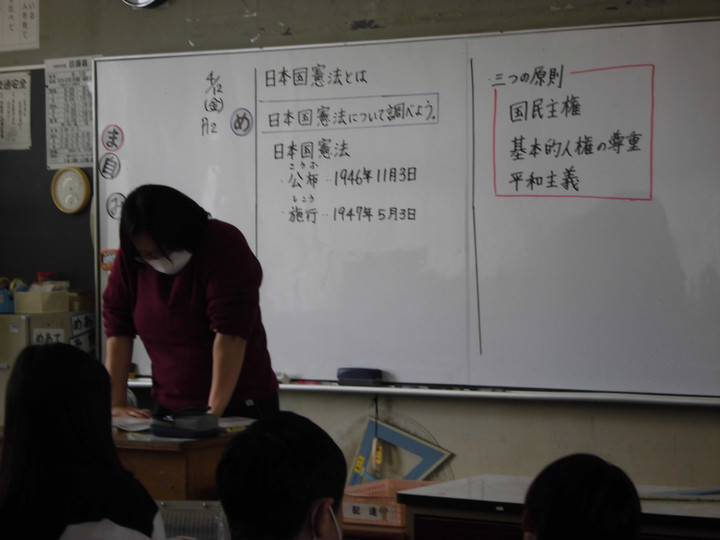 4/12
(金)
日本国憲法とは
め
日本国憲法について調べよう。
日本国憲法
こうふ
・公布‥1946年11月3日
しこう
・施行‥1947年5月3日
・三つの原則
国民主権
基本的人権の尊重
平和主義
ま
自
交通安全
めあて
配達